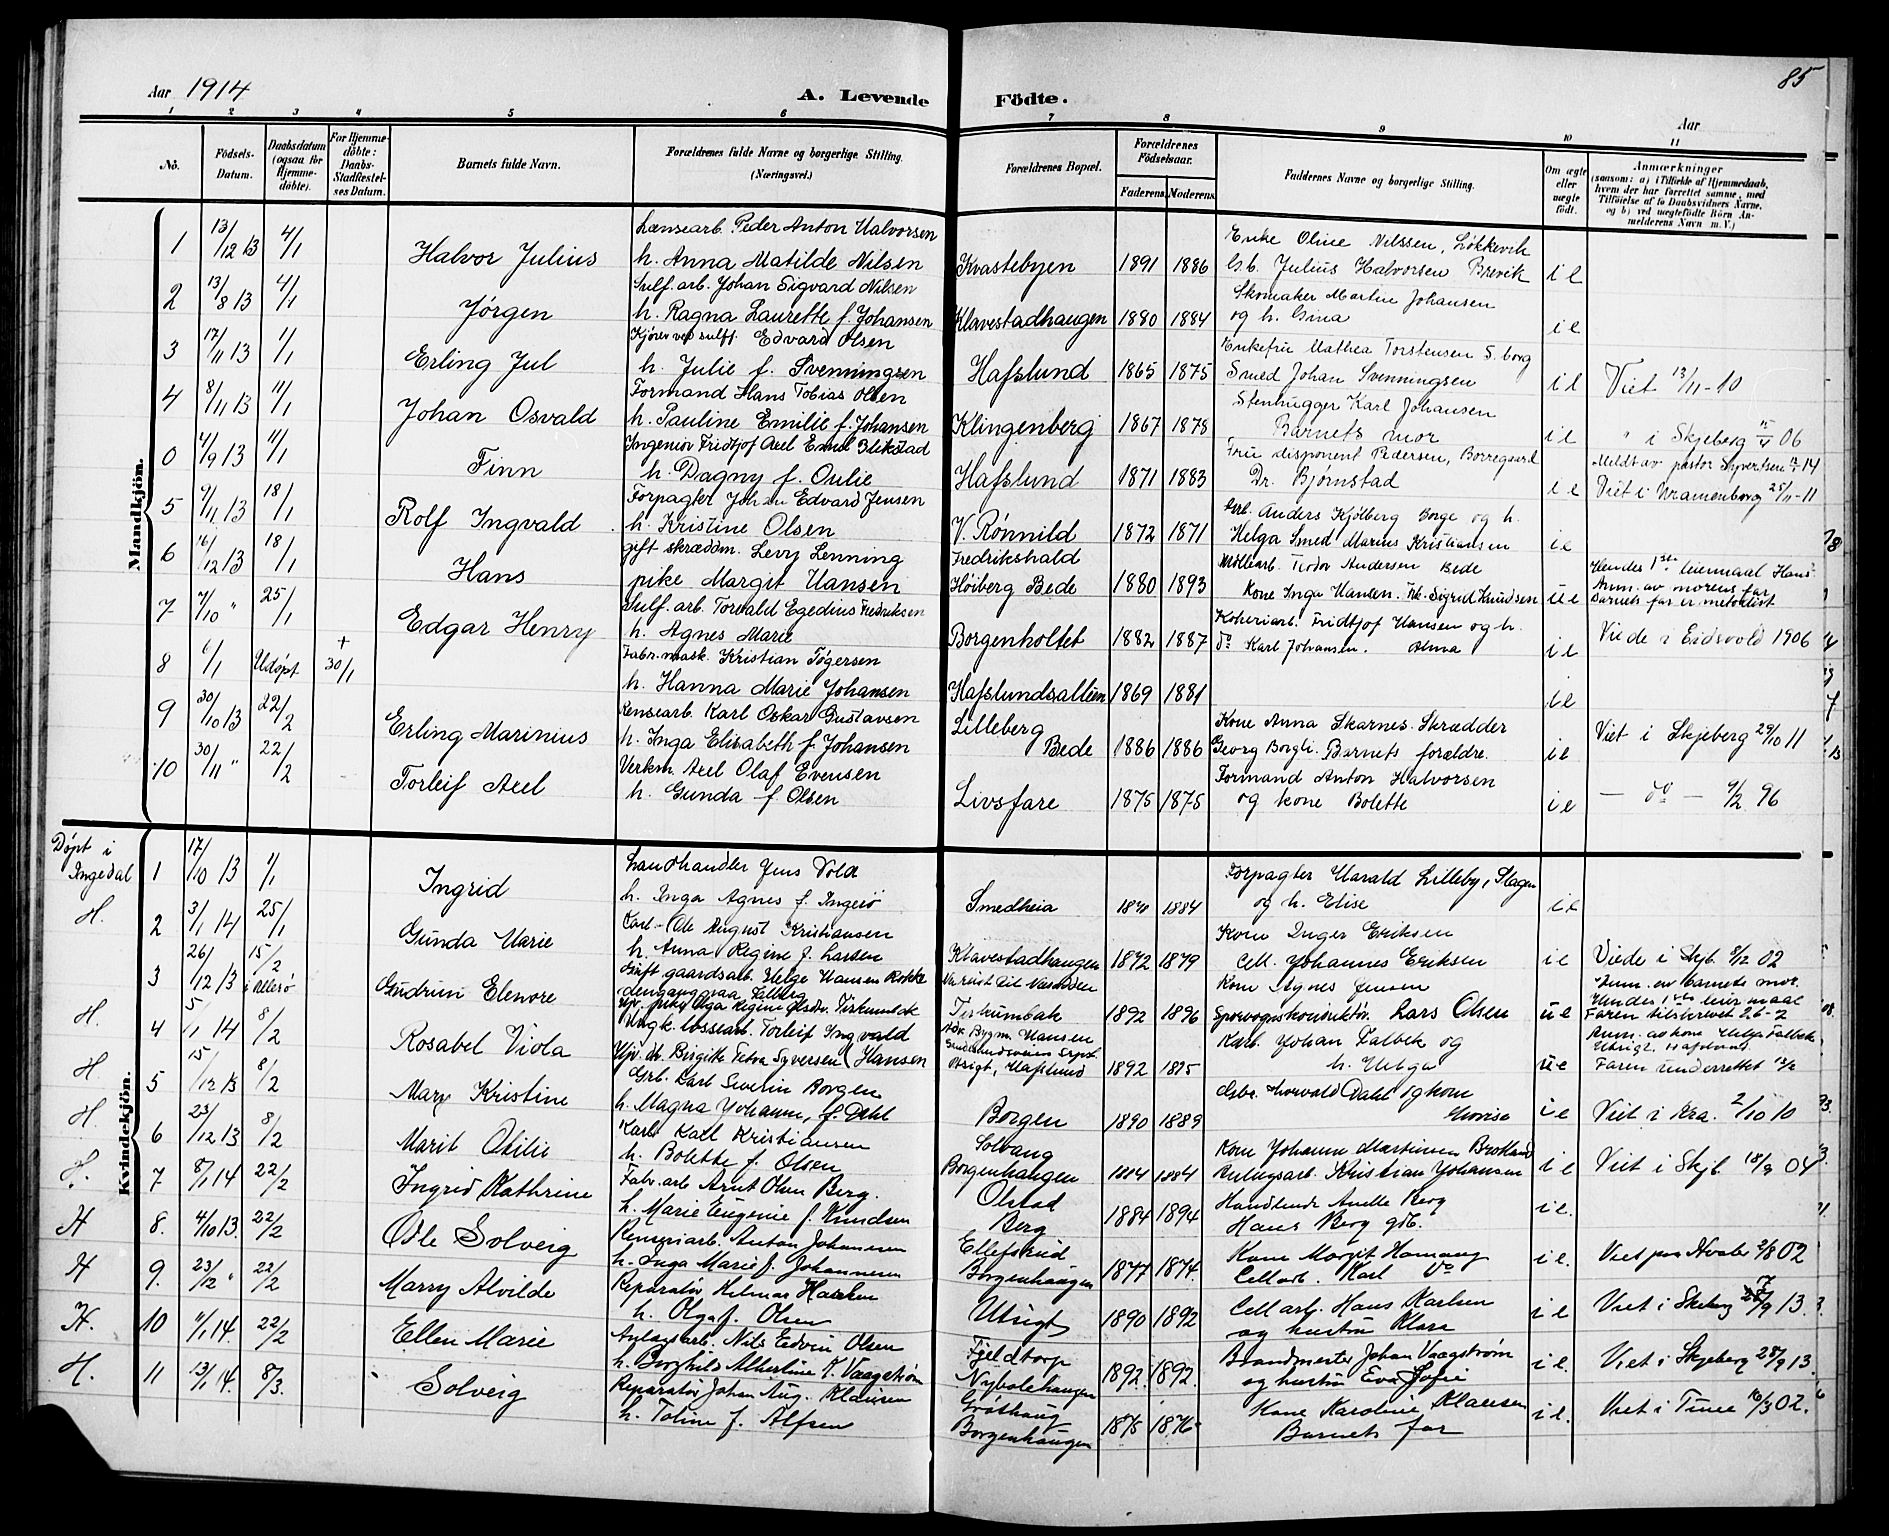 Aar 1914
A. Levende Födte.
85
Aar
1 2 3 4 5 6 7 8 9 10 11
No.
Födsels-Datum.
Daabsdatum (ogsaa for Hjemmedöbte).
For Hjemmedöbte: Daabs-Stadfæstelses Datum.
Barnets fulde Navn.
Forældrenes fulde Navne og borgerlige Stilling. (Næringsvei.)
Forældrenes Bopæl.
Forældrenes Födselsaar.
Faderens Moderens
Faddernes Navne og borgerlige Stilling.
Om ægte eller uægte födt.
Anmærkninger
(saasom: a) i Tilfælde af Hjemmedaab, hvem der har forrettet samme, med Tilföielse af to Daabsvidners Navne, og b) ved uægtefödte Börn Anmelderens Navn m. V.)
Mandkjön.
1 13/12 13 4/1 Halvor Julius
Lænsearb. Peder Anton Halvorsen
h. Anna Matilde Nilsen
Kvastebyen 1891 1886
Enke Oline Nilssen, Løkkevik
Gb. Julius Halvorsen Brevik
i e
2 13/8 13 4/1 Jørgen
Sulf. arb. Johan Sigvard Nilsen
h. Ragna Laurette f. Johansen
Klavestadhaugen 1880 1884
Skomaker Martin Johansen
og h. Gina
i e
3 17/11 13 1/1 Erling Jul
Kjører ved sulff. Edvard Olsen
h. Julie f. Svenningsen
Hafslund 1865 1875
Enkefru Mathea Torstensen S. borg
Smed Johan Svenningsen
i e
Viet 13/11-10
4 8/11 13 11/1 Johan Osvald
Formand Hans Tobias Olsen
h. Pauline Emilie f. Johansen
Klingenberg 1867 1875
Stenhugger Karl Johansen
Barnets mor
i e
" i Skjeberg 15/4 06
0 4/9 13 11/1 Finn
Ingeniør Fridtjof Axel Emil Blikstad
h. Dagny f. Oulie
Hafslund 1871 1883
Frue disponent Pedersen, Borregaard
Dr. Bjørnstad
i e
Meldt av pastor Syvertsen 14
Viet i Uranienborg 25/11-11
5 9/11 13 18/1 Rolf Ingvald
Forpagter Johan Edvard Jensen
h. Kristine Olsen
V. Rønnild 1872 1871
Grb. Anders Kjølberg Borge og h.
Helga Smed Marius Kristiansen
i e
6 16/12 13 18/1 Hans
gift skræddm. Levy Lenning
pike Margit Hansen
Fredrikshald
Høiberg Bede 1880 1893
Møllearb. Teodor Andersen Bede
Kone Inga Hansen. Frk. Sigrid Knudsen
u e
Hendes 1ste leiermaal Hans
Anm. av morens far
Barnets far er metodist
7 7/10 " 25/1 Edgar Henry
Sulf. arb. Torvald Egedius Fredriksen
h. Agnes Marie
Borgenholtet 1882 1887
Kokeriarb. Fridtjof Hansen og h.
do Karl Johansen. Alma
i e
Viede i Eidsvold 1906
8 6/1 Udøpt + 30/1
Fabr. mask. Kristian Tøgersen
h. Hanna Marie Johansen
Hafslundsalleen 1869 1881
i e
9 30/10 13 22/2 Erling Marinius
Rensearb. Karl Oskar Gustavsen
h. Inga Elisabeth f. Johansen
Lilleberg
Bede 1886 1886
Kone Anna Skarnes. Skrædder
Georg Borgli. Barnets forældre.
i e
Viet i Skjeberg 29/10 11
10 30/11 " 22/2 Torleif Axel
Verkm. Axel Olaf Evensen
h. Gunda f. Olsen
Livsfare 1875 1875
Formand Anton Halvorsen
og kone Bolette
i e
— do — 9/2 96
Kvindekjön.
Døpt i
Ingedal
1 17/10 13 1/1 Ingrid
Landhandler Jens Vold
h. Inga Agnes f. Ingerø
Smedheia 1884
Forpagter Harald Lilleby, Slagen
og h. Elise
i e
H. 2 3/1 14 25/1 Gunda Marie
Karl Ole August Kristiansen
h. Anna Regine f. Larsen
Klavestadhaugen 1872 1879
Kone Inger Eriksen
Cell. Johannes Eriksen
i e
Viede i Skjb. 8/12 02
3 26/12 13 15/2 i Ullerø Gudrun Elenore
Gift gaardsarb. Helge Hansen Rokke
Tirkumbak 1892 1896
Kone Agnes Jensen
Sporvognskonduktør Lars Olsen
u e
Anm. av barnets mor.
Hendes 1ste leiermaal
Faren tilskrevet 26-2
H. 4 5/1 14 8/2 Rosabel Viola
Ungk. lossearb. Torleif Ingvald Hansen
Ugv. dt. Birgitte Petra Syversen
Utsigt, Hafslund 1892 1895
Karb. Johan Falbek og
h. Helga
u e
Anm. av kone Helga Falbek
Utsigt. Hafslund
Faren underrettet 13/2
H. 5 15/12 13 8/2 Mary Kristine
Grb. Karl Severin Borgen
h. Magna Johanne, f. Dahl
Borgen 1890 1889
Gbr. Torvald Dahl og kone
Lovise
i e
Viet i Kra. 2/10 10
H. 6 23/12 13 8/2 Marit Otilie
Karb. Karl Kristiansen
h. Bolette f. Olsen
Solvang
Borgenhaugen 1884 1884
Kone Johanne Martinsen Brotland
Kristian Johansen
i e
Viet i Skjb. 18/9 04
H. 7 8/1 14 22/2 Ingrid Kathrine
Fabr. arb Arnt Olsen Berg.
h. Marie Eugenie f. Knudsen
Olstad
Berg 1884 1894
Handlende Anette Berg
Hans Berg gdb.
i e.
H 8. 4/10 13. 22/2 Odle Solveig
Renseriarb. Anton Johannesen
h. Inga Marie f. Johannesen
Ellefsrud
Borgenhaugen 1877 1874.
Kone Margit Hamang
Cellarb. Karl do
i e.
Viet paa Hvaler 2/8 02
H 9. 23/12 " 22/2 Marry Alvilde
Reparatør Helmer Hansen
h. Olga f. Olsen
Utsigt 1890 1892
Cellarb. Hans Karlsen
og hustru Klara
i e
Viet i Skeberg 7/9 13.
H. 10 11/1 14. 22/2 Ellen Marie
Anlægsarb. Nils Edvin Olsen
h. Borghild Albertine K. Vaagstrøm
Fjeldtorp
Nybolehaugen 1892. 1892.
Brandmester Johan Vaagstrøm
og hustru Eva Sofie
i e.
Viet i Skjeberg 28/9 13.
H. 11 13/1 14. 8/3. Solveig
Reparatør Johan Aug. Klausen
h. Toline f. Alfsen
Grøthaug
Borgenhaugen 1875 1876
Kone Karoline Klausen
Barnets far
i e.
Viet i Tune 16/3 02.